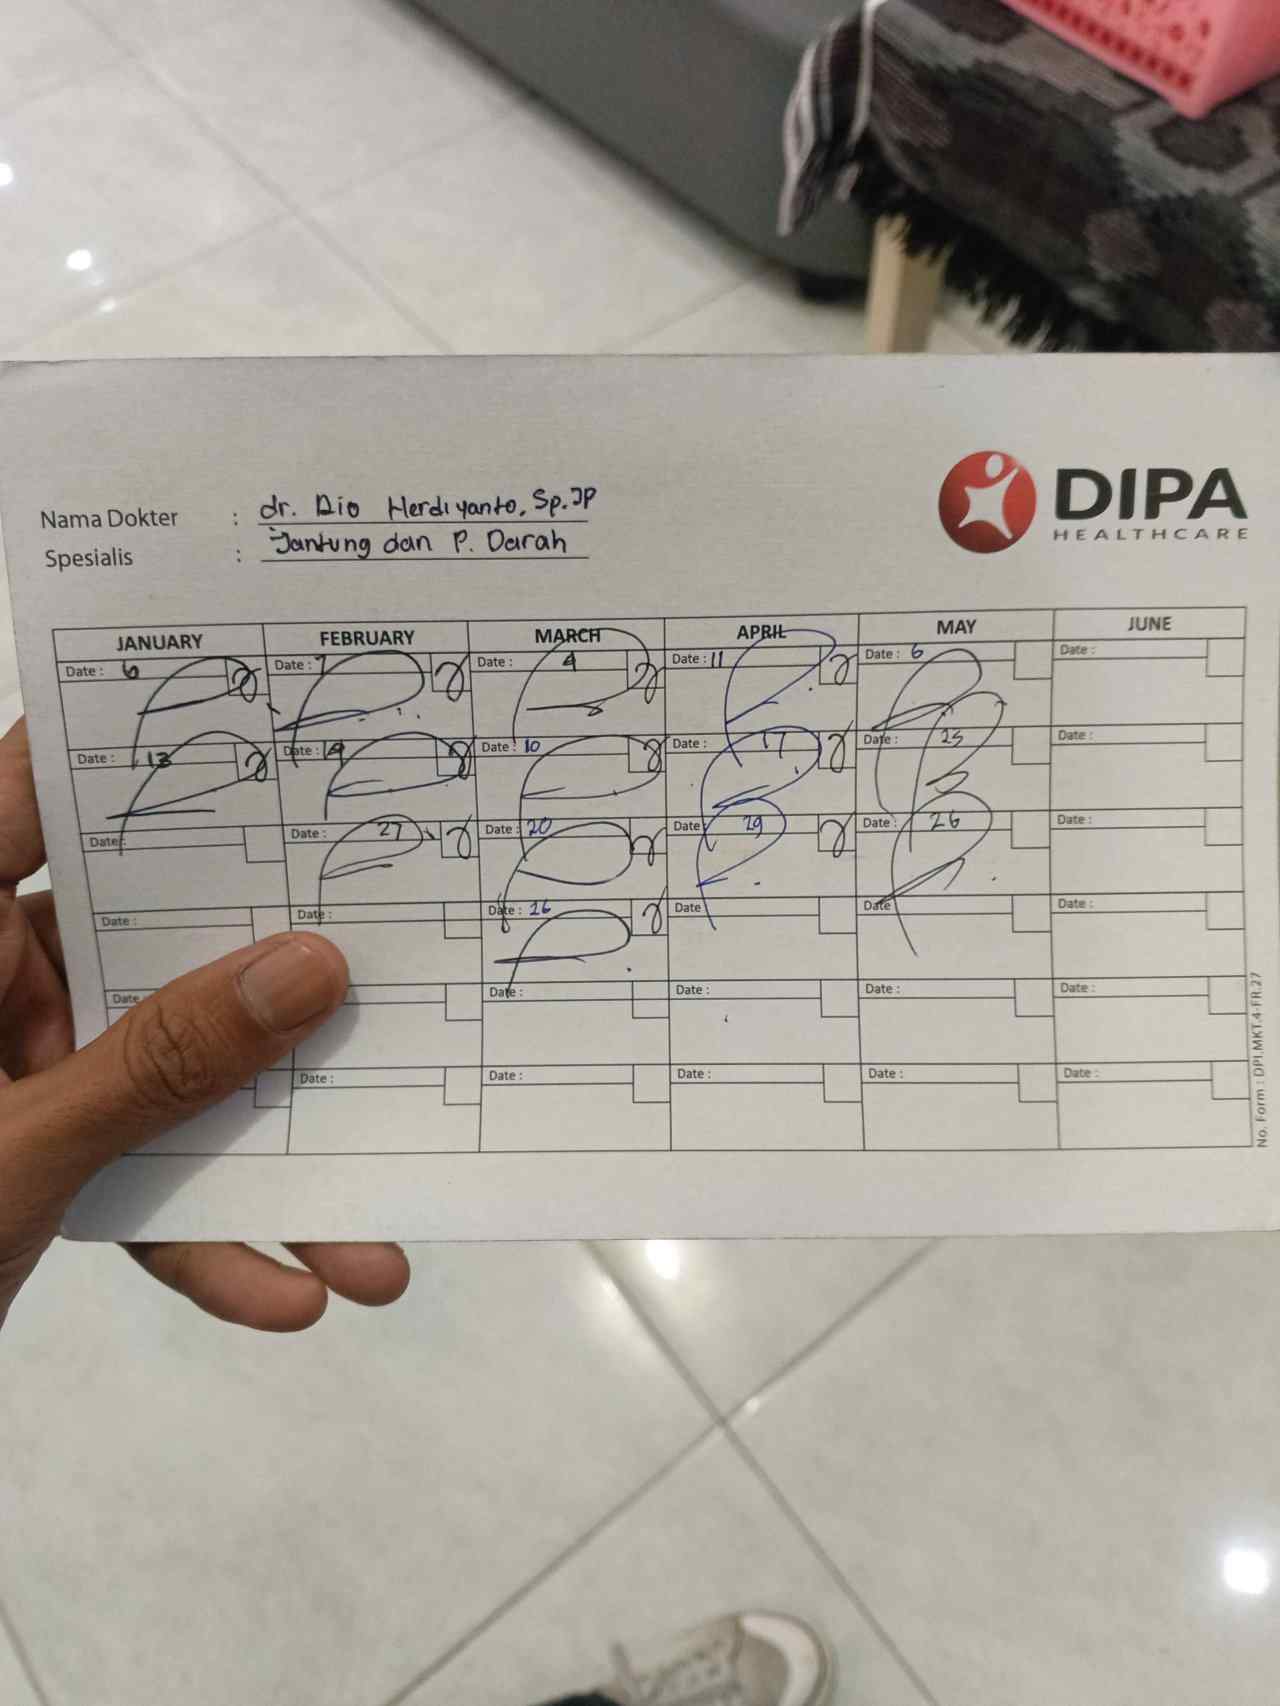 DIPA
HEALTHCARE
Nama Dokter : dr. Dio Herdiyanto, Sp.JP
Spesialis : Jantung dan P. Darah
JANUARY FEBRUARY MARCH APRIL MAY JUNE
Date : 6 Date : 7 Date : 4 Date : 11 Date : 6 Date :
Date : 13 Date : 19 Date : 10 Date : 17 Date : 25 Date :
Date : Date : 27 Date : 20 Date : 29 Date : 26 Date :
Date : Date : Date : 26 Date : Date : Date :
Date : Date : Date : Date : Date :
Date : Date : Date : Date : Date :
No. Form : DPI.MKT.4-FR.27